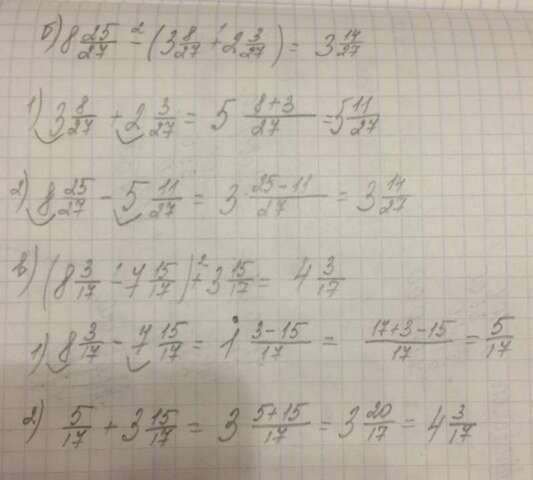 б) 8 25/27 - (3 8/27 + 2 3/27) = 3 14/27
1) 3 8/27 + 2 3/27 = 5 8+3/27 = 5 11/27
2) 8 25/27 - 5 11/27 = 3 25-11/27 = 3 14/27
в) (8 3/17 - 7 15/17) + 3 15/17 = 4 3/17
1) 8 3/17 - 7 15/17 = 1 3-15/17 = 17+3-15/17 = 5/17
2) 5/17 + 3 15/17 = 3 5+15/17 = 3 20/17 = 4 3/17